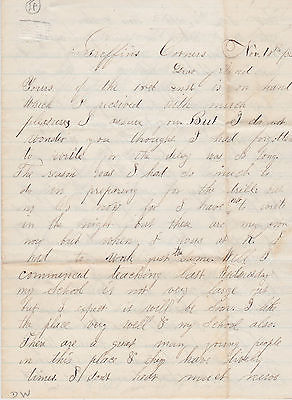 Griffins Corners, Nov. 10th
Dear Friend
Yours of the inst is on hand
Which I received with much
pleasure I assure you. But I do not
wonder you thought I had forgotten
to write for the delay was so long.
The reason was I had so much to
do in preparing for the
now for I have not to work
in the but these are my own
now but when I was at K. I
had to work just the same. Well I
commenced teaching last Wednesday
my School is not very large yet
but I expect it will be soon. I like
the place very well & my School also.
There are a great many young people
in this place & they have lively
times. I dont hear much news
DW